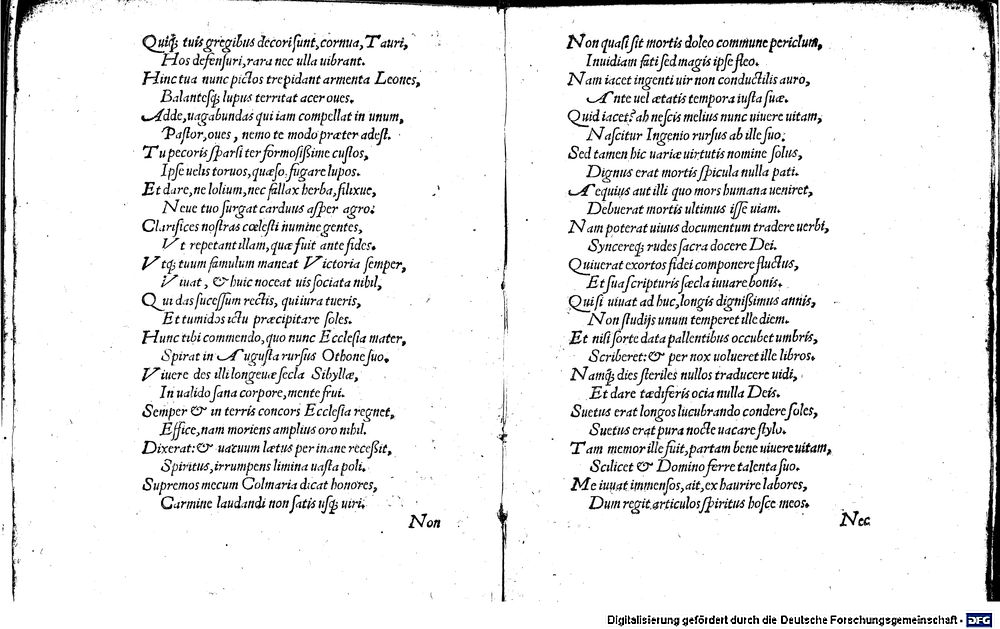 Quiq́; tuis gregibus decori ſunt, cornua, Tauri,
Hos defenſuri, rara nec ulla uibrant.
Hinc tua nunc pictos trepidant armenta Leones,
Balantesq́; lupus territat acer oues.
Adde, uagabundas qui iam compellat in unum,
Paſtor, oues, nemo te modo præter adeſt.
Tu pecoris ſparſi ter formoſißime cuſtos,
Ipſe uelis toruos, quæſo, fugare lupos.
Et dare, ne lolium, nec fallax herba, filixue,
Neue tuo ſurgat carduus aſper agro:
Clarifices noſtras cœleſti numine gentes,
Vt repetant illam, quæ fuit ante fides.
Vtq́; tuum famulum maneat Victoria ſemper,
Viuat, & huic noceat uis ſociata nihil,
Qui das ſuceſſum rectis, qui iura tueris,
Et tumidos ictu præcipitare ſoles.
Hunc tibi commendo, quo nunc Eccleſia mater,
Spirat in Auguſta rurſus Othone ſuo.
Viuere des illi longeuæ ſecla Sibyllæ,
In ualido ſana corpore, mente frui.
Semper & in terris concors Eccleſia regnet,
Effice, nam moriens amplius oro nihil.
Dixerat: & uacuum lætus per inane receßit,
Spiritus, irrumpens limina uaſta poli.
Supremos mecum Colmaria dicat honores,
Carmine laudandi non ſatis uſq́; uiri:
Non
Non quaſi ſit mortis doleo commune periclum,
Inuidiam fati ſed magis ipſe fleo.
Nam iacet ingenti uir non conductilis auro,
Ante uel ætatis tempora iuſta ſuæ.
Quid iacet? ah neſcis melius nunc uiuere uitam,
Naſcitur Ingenio rurſus ab ille ſuo:
Sed tamen hic uariæ uirtutis nomine ſolus,
Dignus erat mortis ſpicula nulla pati.
Aequius aut illi quo mors humana ueniret,
Debuerat mortis ultimus iſſe uiam.
Nam poterat uiuus documentum tradere uerbi,
Syncereq́; rudes ſacra docere Dei.
Quiuerat exortos fidei componere fluctus,
Et ſua ſcripturis ſæcla iuuare bonis.
Qui ſi uiuat ad huc, longis digniſsimus annis,
Non ſtudijs unum temperet ille diem.
Et niſi forte data pallentibus occubet umbris,
Scriberet: & per nox uolueret ille libros.
Namq́; dies ſteriles nullos traducere uidi,
Et dare tædiferis ocia nulla Deis.
Suetus erat longos lucubrando condere ſoles,
Suetus erat pura nocte uacare ſtylo.
Tam memor ille fuit, partam bene uiuere uitam,
Scilicet & Domino ferre talenta ſuo.
Me iuuat immenſos, ait, ex haurire labores,
Dum regit articulos ſpiritus hoſce meos.
Nec
Digitalisierung gefördert durch die Deutsche Forschungsgemeinschaft - DFG